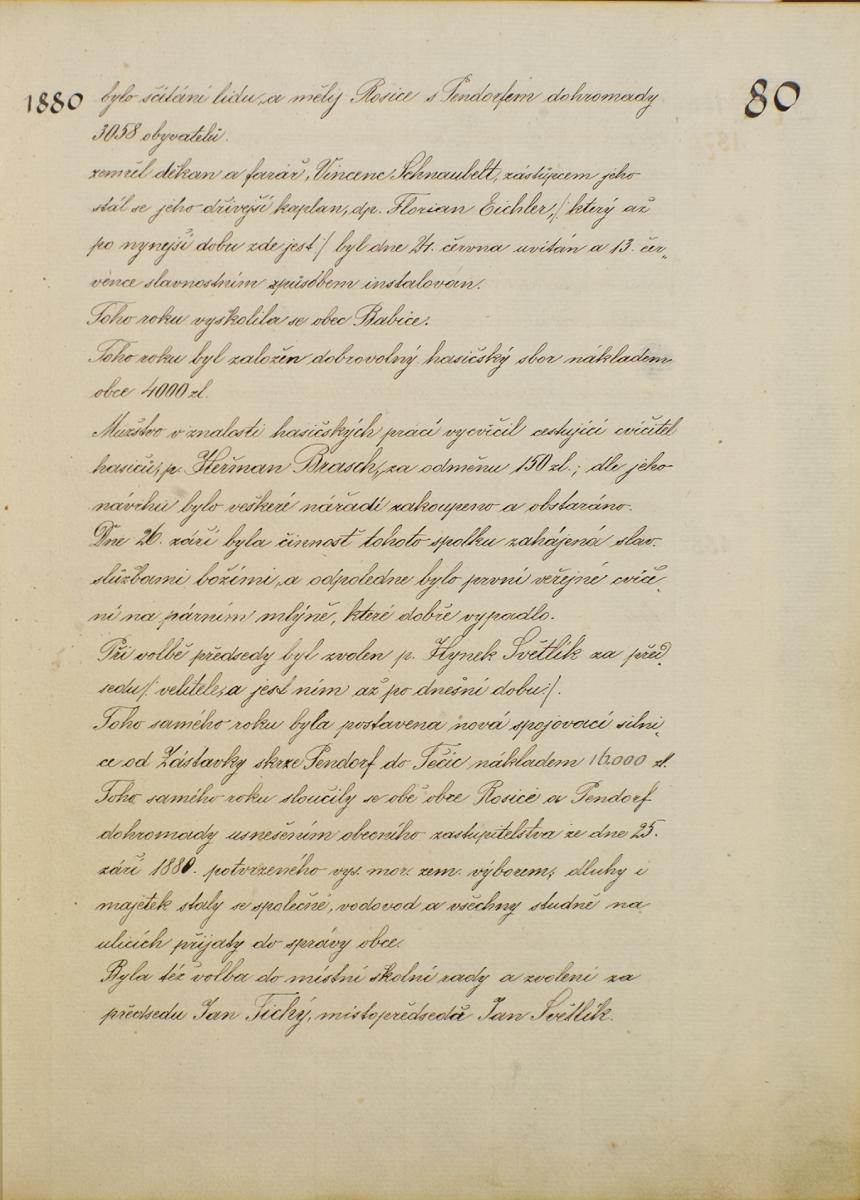 1880 bylo sčítání lidu, a měly Rosice s Pendorfem dohromady 80
3058 obyvatelů.
zemřel děkan a farář, Vincenc Schnaubelt, zástupcem jeho
stál se jeho dřívější kaplan, dp. Florian Eichler, /: který až
po nynější dobu zde jest :/ byl dne 24. června uvítán a 13. čer„
vence slavnostním způsobem instalován.
Toho roku vyškolila se obec Babice.
Toho roku byl založen dobrovolný hasičský sbor nákladem
obce 4000 zl.
Mužstvo v znalosti hasičských prací vycvičil cestující cvičitel
hasičů, p. Heřman Brasch, za odměnu 150 zl.; dle jeho
návrhu bylo veškeré nářadí zakoupeno a obstaráno.
Dne 26. září byla činnost tohoto spolku zahájená slav.
službami božími, a odpoledne bylo první veřejné cviče„
ní na párním mlýně, které dobře vypadlo.
Při volbě předsedy byl zvolen p. Hynek Světlík za před„
sedu /: velitele, a jest ním až po dnešní dobu :/.
Toho samého roku byla postavena nová spojovací silni„
ce od Zástavky skrze Pendorf do Tečic nákladem 16.000 zl.
Toho samého roku sloučily se obě obce Rosice a Pendorf
dohromady usnešením obecního zastupitelstva ze dne 25.
září 1880. potvrzeného vys. mor. zem. výborem; dluhy i
majetek staly se společné, vodovod a všechny studně na
ulicích přijaty do správy obce.
Byla též volba do místní školní rady a zvoleni za
předsedu Jan Tichý, místopředseda Jan Světlík.